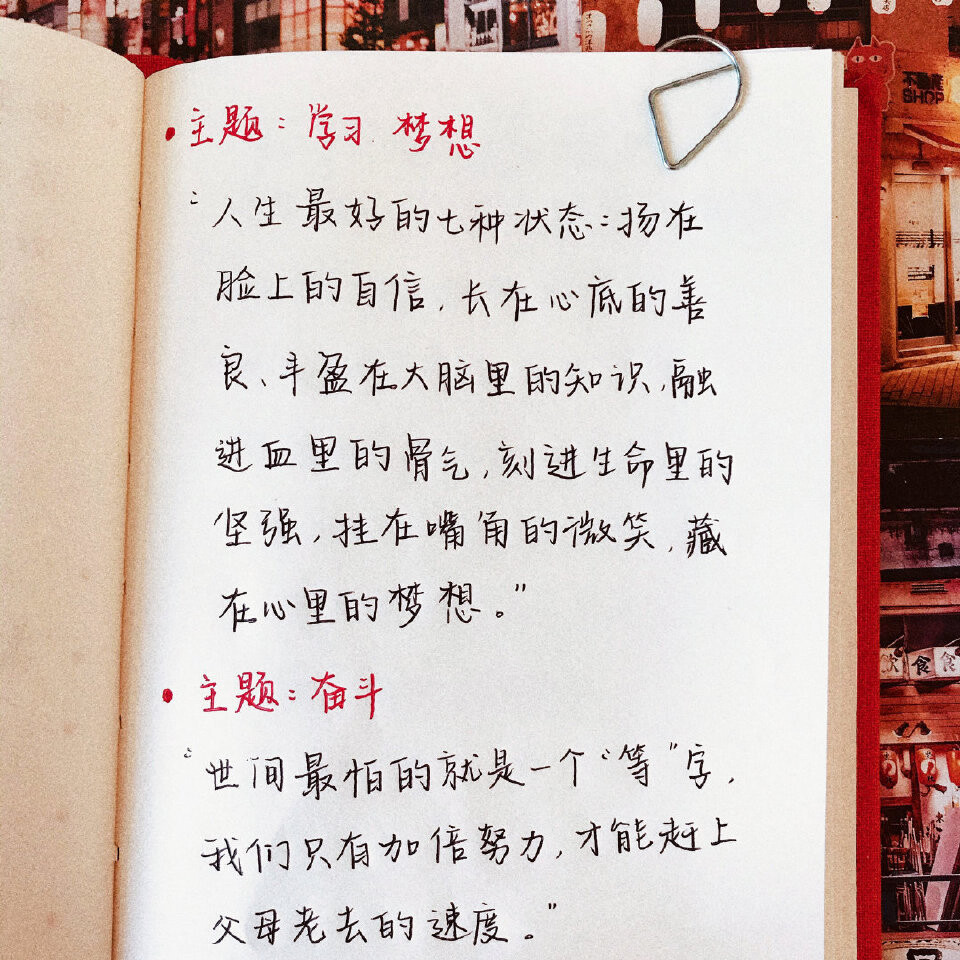 不動産
SHOP
• 主题：学习 梦想
“人生最好的七种状态：扬在
脸上的自信，长在心底的善
良、丰盈在大脑里的知识，融
进血里的骨气，刻进生命里的
坚强，挂在嘴角的微笑，藏
在心里的梦想。”
• 主题：奋斗
“世间最怕的就是一个“等”字，
我们只有加倍努力，才能赶上
父母老去的速度。”
飲食